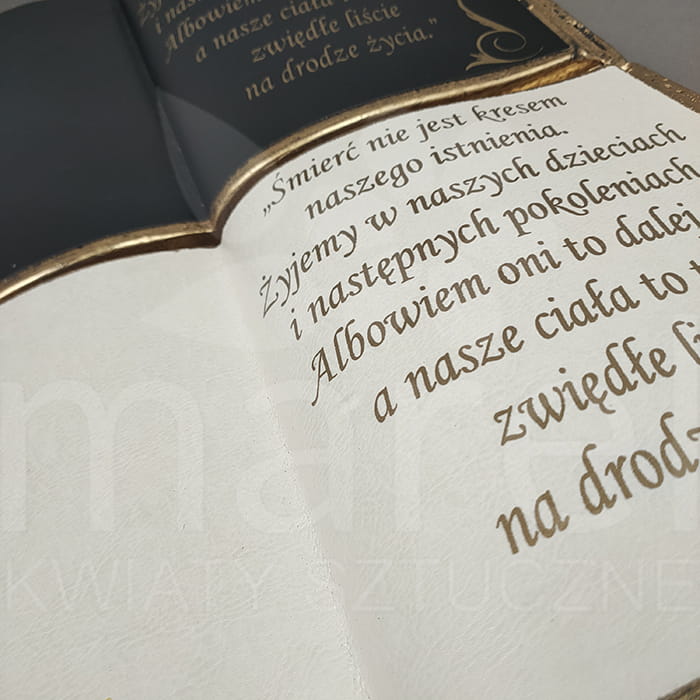 Żyj
i nas
Albowiem
a nasze ciała
zwiędłe liście
na drodze życia."
„Śmierć nie jest kresem
naszego istnienia.
Żyjemy w naszych dzieciach
i następnych pokoleniach
Albowiem oni to dalej
a nasze ciała to
zwiędłe li
na drodz
mare
KWIATY SZTUCZNE